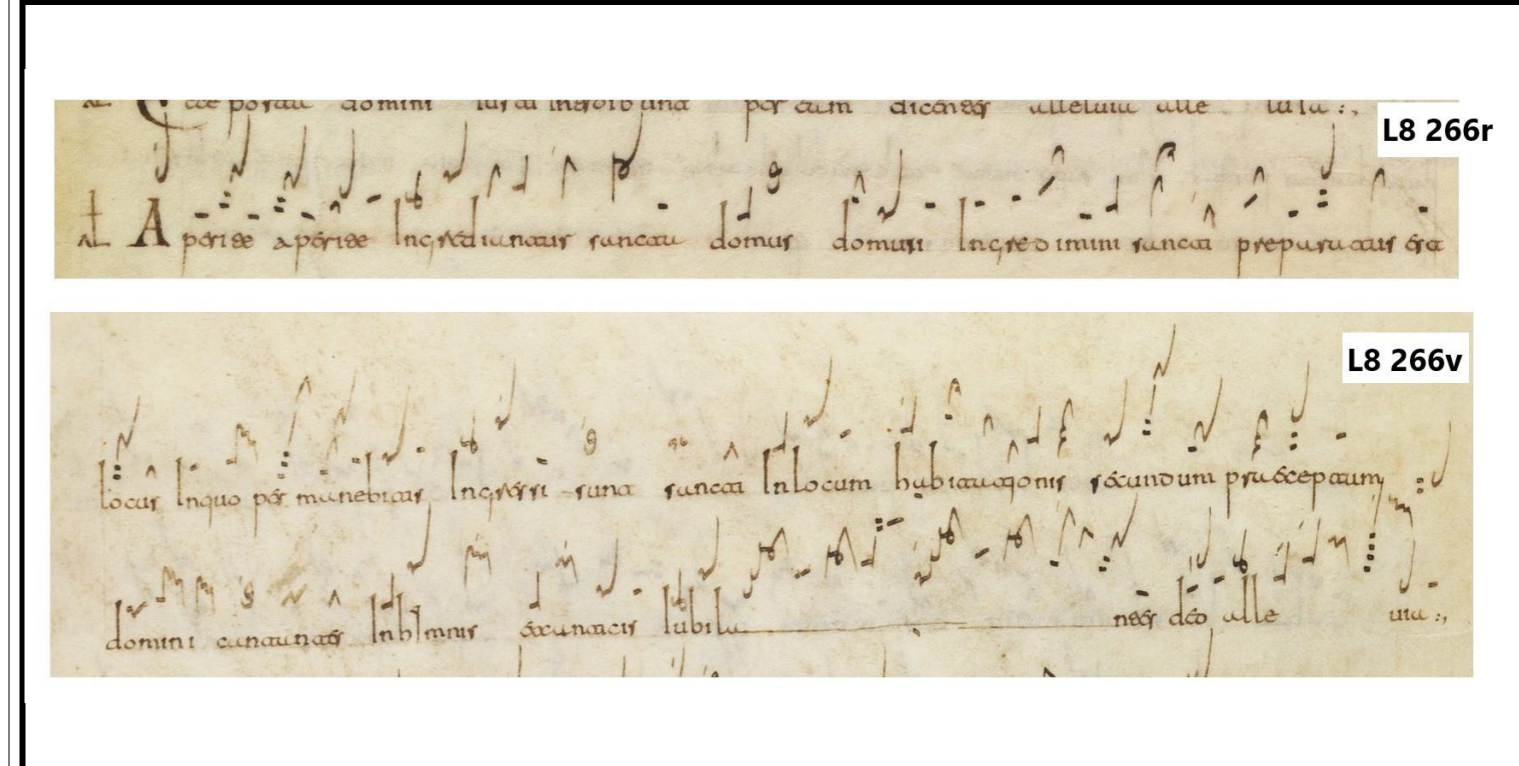 AL Ecce porta domini iusti introibunt per eam dicentes alleluia alle luia :,
L8 266r
AL Aperite aperite Ingrediantur sancta domus domini Ingredimini sancti preparatus est
L8 266v
locus Inquo permanebitis Ingressi sunt sancti Inlocum habitationis secundum praeceptum
domini cantantes Inhymnis et canticis Iubila ntes deo alle uia :,